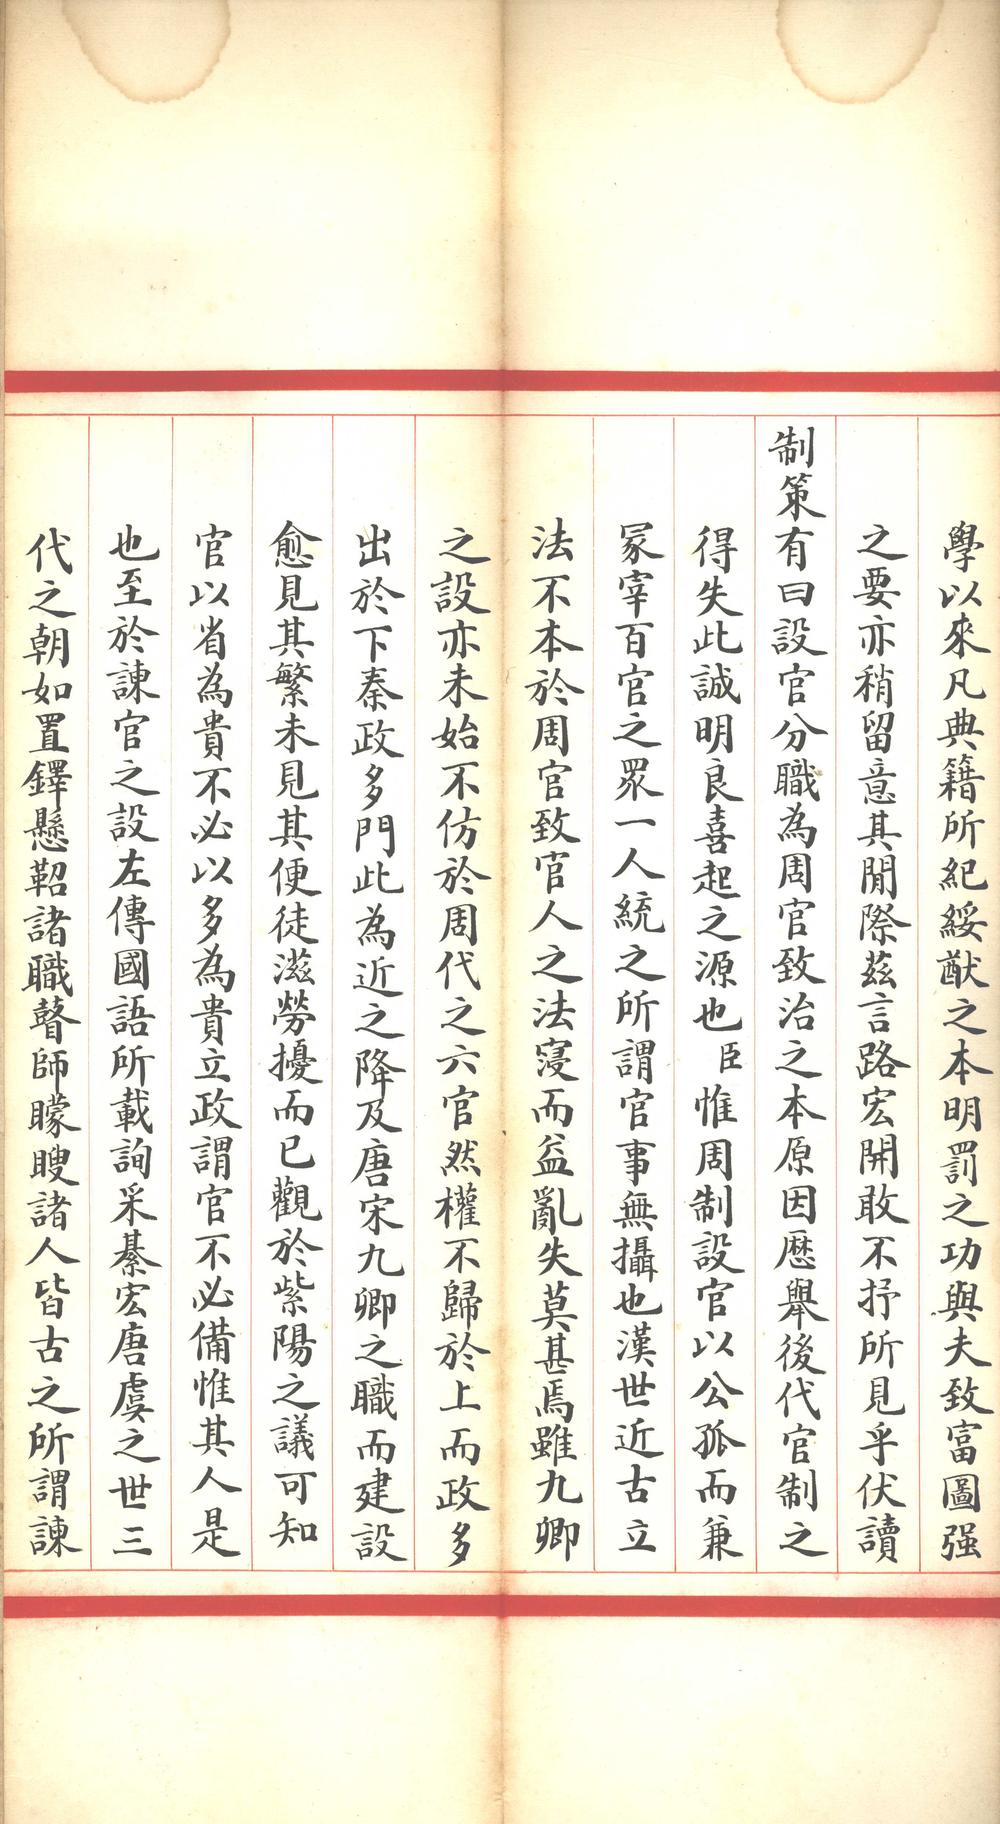 學以來凡典籍所紀綏猷之本明罰之功與夫致富圖强
之要亦稍留意其閒際茲言路宏開敢不抒所見乎伏讀
制策有曰設官分職為周官致治之本原因厯舉後代官制之
得失此誠明良喜起之源也臣惟周制設官以公孤而兼
冢宰百官之眾一人統之所謂官事無攝也漢世近古立
法不本於周官致官人之法寖而益亂失莫甚焉雖九卿
之設亦未始不仿於周代之六官然權不歸於上而政多
出於下秦政多門此為近之降及唐宋九卿之職而建設
愈見其繁未見其便徒滋勞擾而已觀於紫陽之議可知
官以省為貴不必以多為貴立政謂官不必備惟其人是
也至於諫官之設左傳國語所載詢采綦宏唐虞之世三
代之朝如置鐸懸鞀諸職瞽師矇瞍諸人皆古之所謂諫